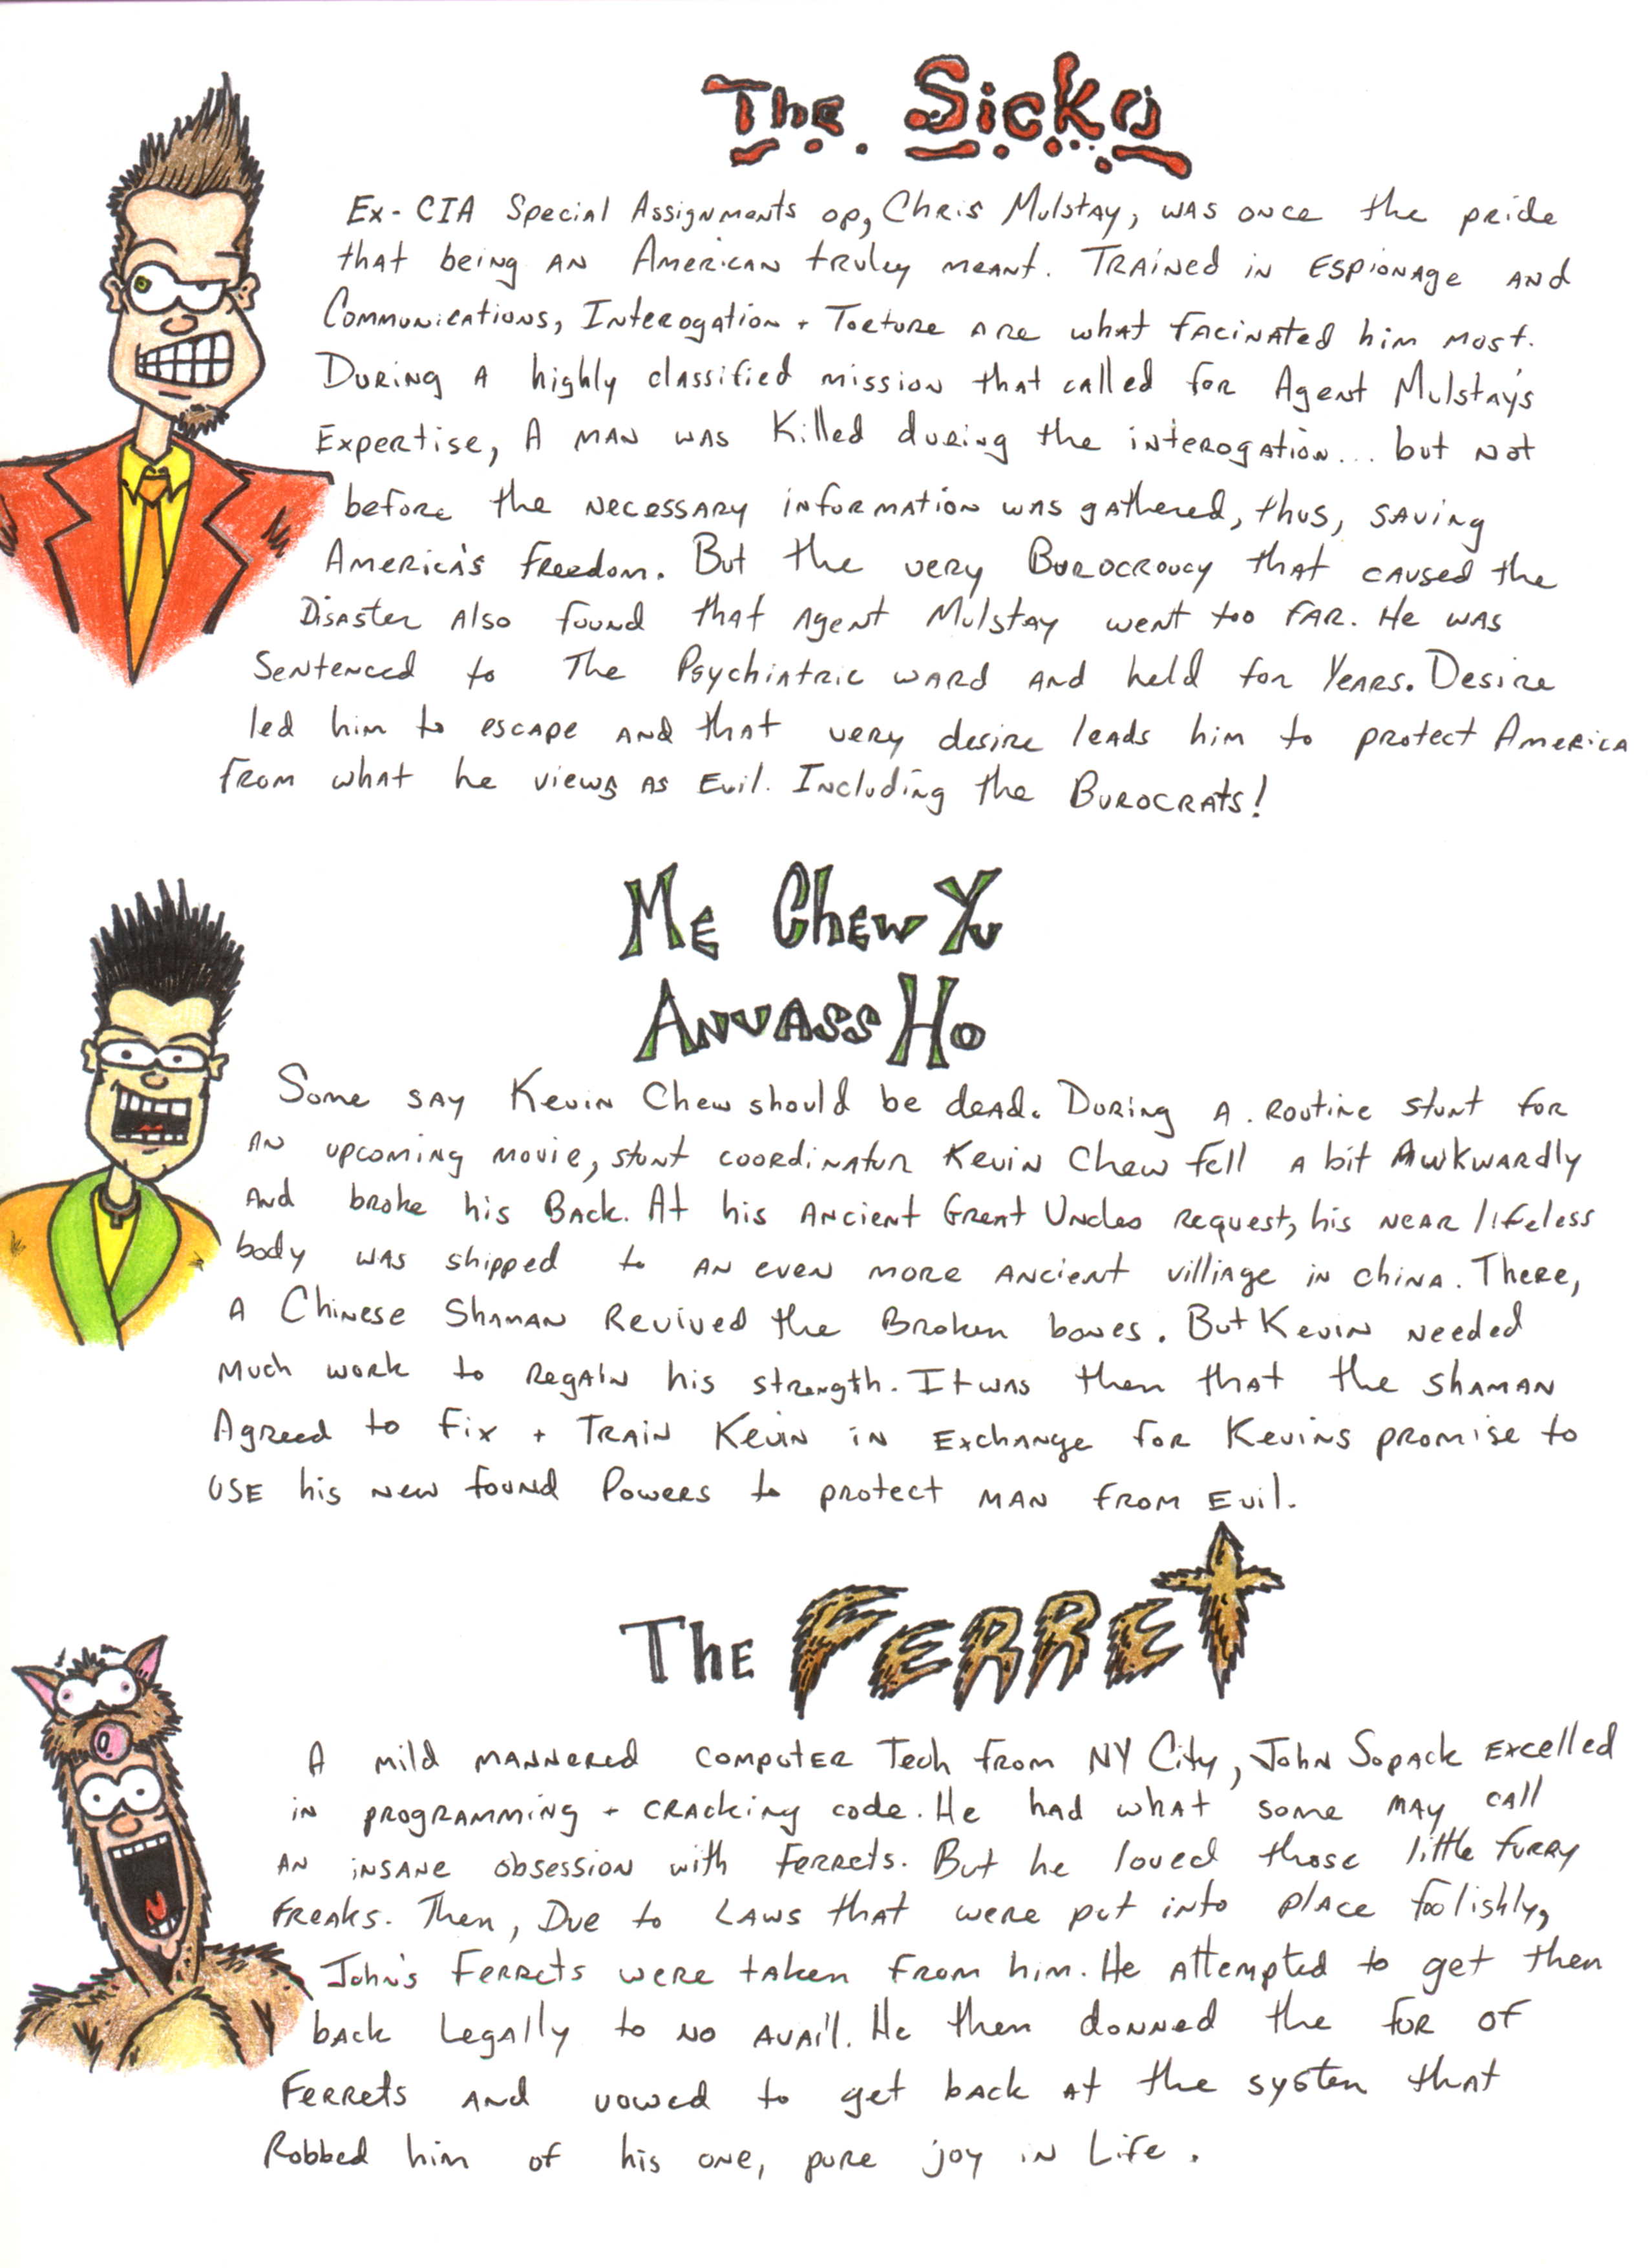 The Sicko
Ex-CIA Special Assignments op, Chris Mulstay, was once the pride
that being an American truley meant. Trained in Espionage and
Communications, Interogation + Torture are what facinated him most.
During a highly classified mission that called for Agent Mulstay's
Expertise, A man was Killed during the interogation... but not
before the necessary information was gathered, thus, saving
America's freedom. But the very Burocroucy that caused the
Disaster also found that Agent Mulstay went too far. He was
Sentenced to The Psychiatric ward and held for Years. Desire
led him to escape and that very desire leads him to protect America
from what he views as Evil. Including the Burocrats!
Me Chew Yu
Anuass Ho
Some say Kevin Chew should be dead. During a routine stunt for
an upcoming movie, stunt coordinatur Kevin Chew fell a bit Awkwardly
and broke his Back. At his Ancient Great Uncles request, his near lifeless
body was shipped to an even more ancient villiage in china. There,
a Chinese Shaman Revived the Broken bones. But Kevin needed
much work to regain his strength. It was then that the shaman
Agreed to fix + train Kevin in Exchange for Kevins promise to
use his new found Powers to protect man from Evil.
The Ferret
A mild mannered computer Tech from NY City, John Sopack Excelled
in programming + cracking code. He had what some may call
an insane obsession with ferrets. But he loved those little furry
freaks. Then, Due to Laws that were put into place foolishly,
John's Ferrets were taken from him. He attempted to get then
back Legally to no avail. He then donned the fur of
Ferrets and vowed to get back at the systen that
Robbed him of his one, pure joy in Life.